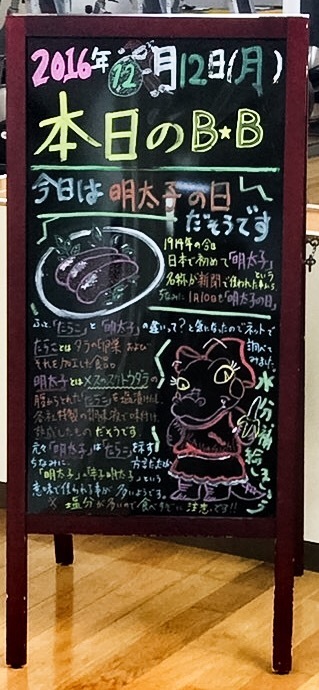 2016年 12月12日(月)
本日のB★B
今日は明太子の日
だそうです
1914年の今日
日本で初めて「明太子」という
名称が新聞で使われた事から
ちなみに 1月10日も「明太子の日」
ふと「たらこ」と「明太子」の違いって?と気になったのでネットで
調べてみました。
たらことはタラの卵巣および
それを加工した食品
明太子とはメスのスケトウダラの
腹からとれた「たらこ」を塩漬けし、
各社特製の調味液で味付け、
熟成したもの だそうです
元々「明太子」は「たらこ」を示す
方言だったとか
ちなみに
「明太子」=「辛子明太子」という
意味で使われる事が多いようです。
※塩分が多いので食べすぎに注意です!!
水分補給しましょう